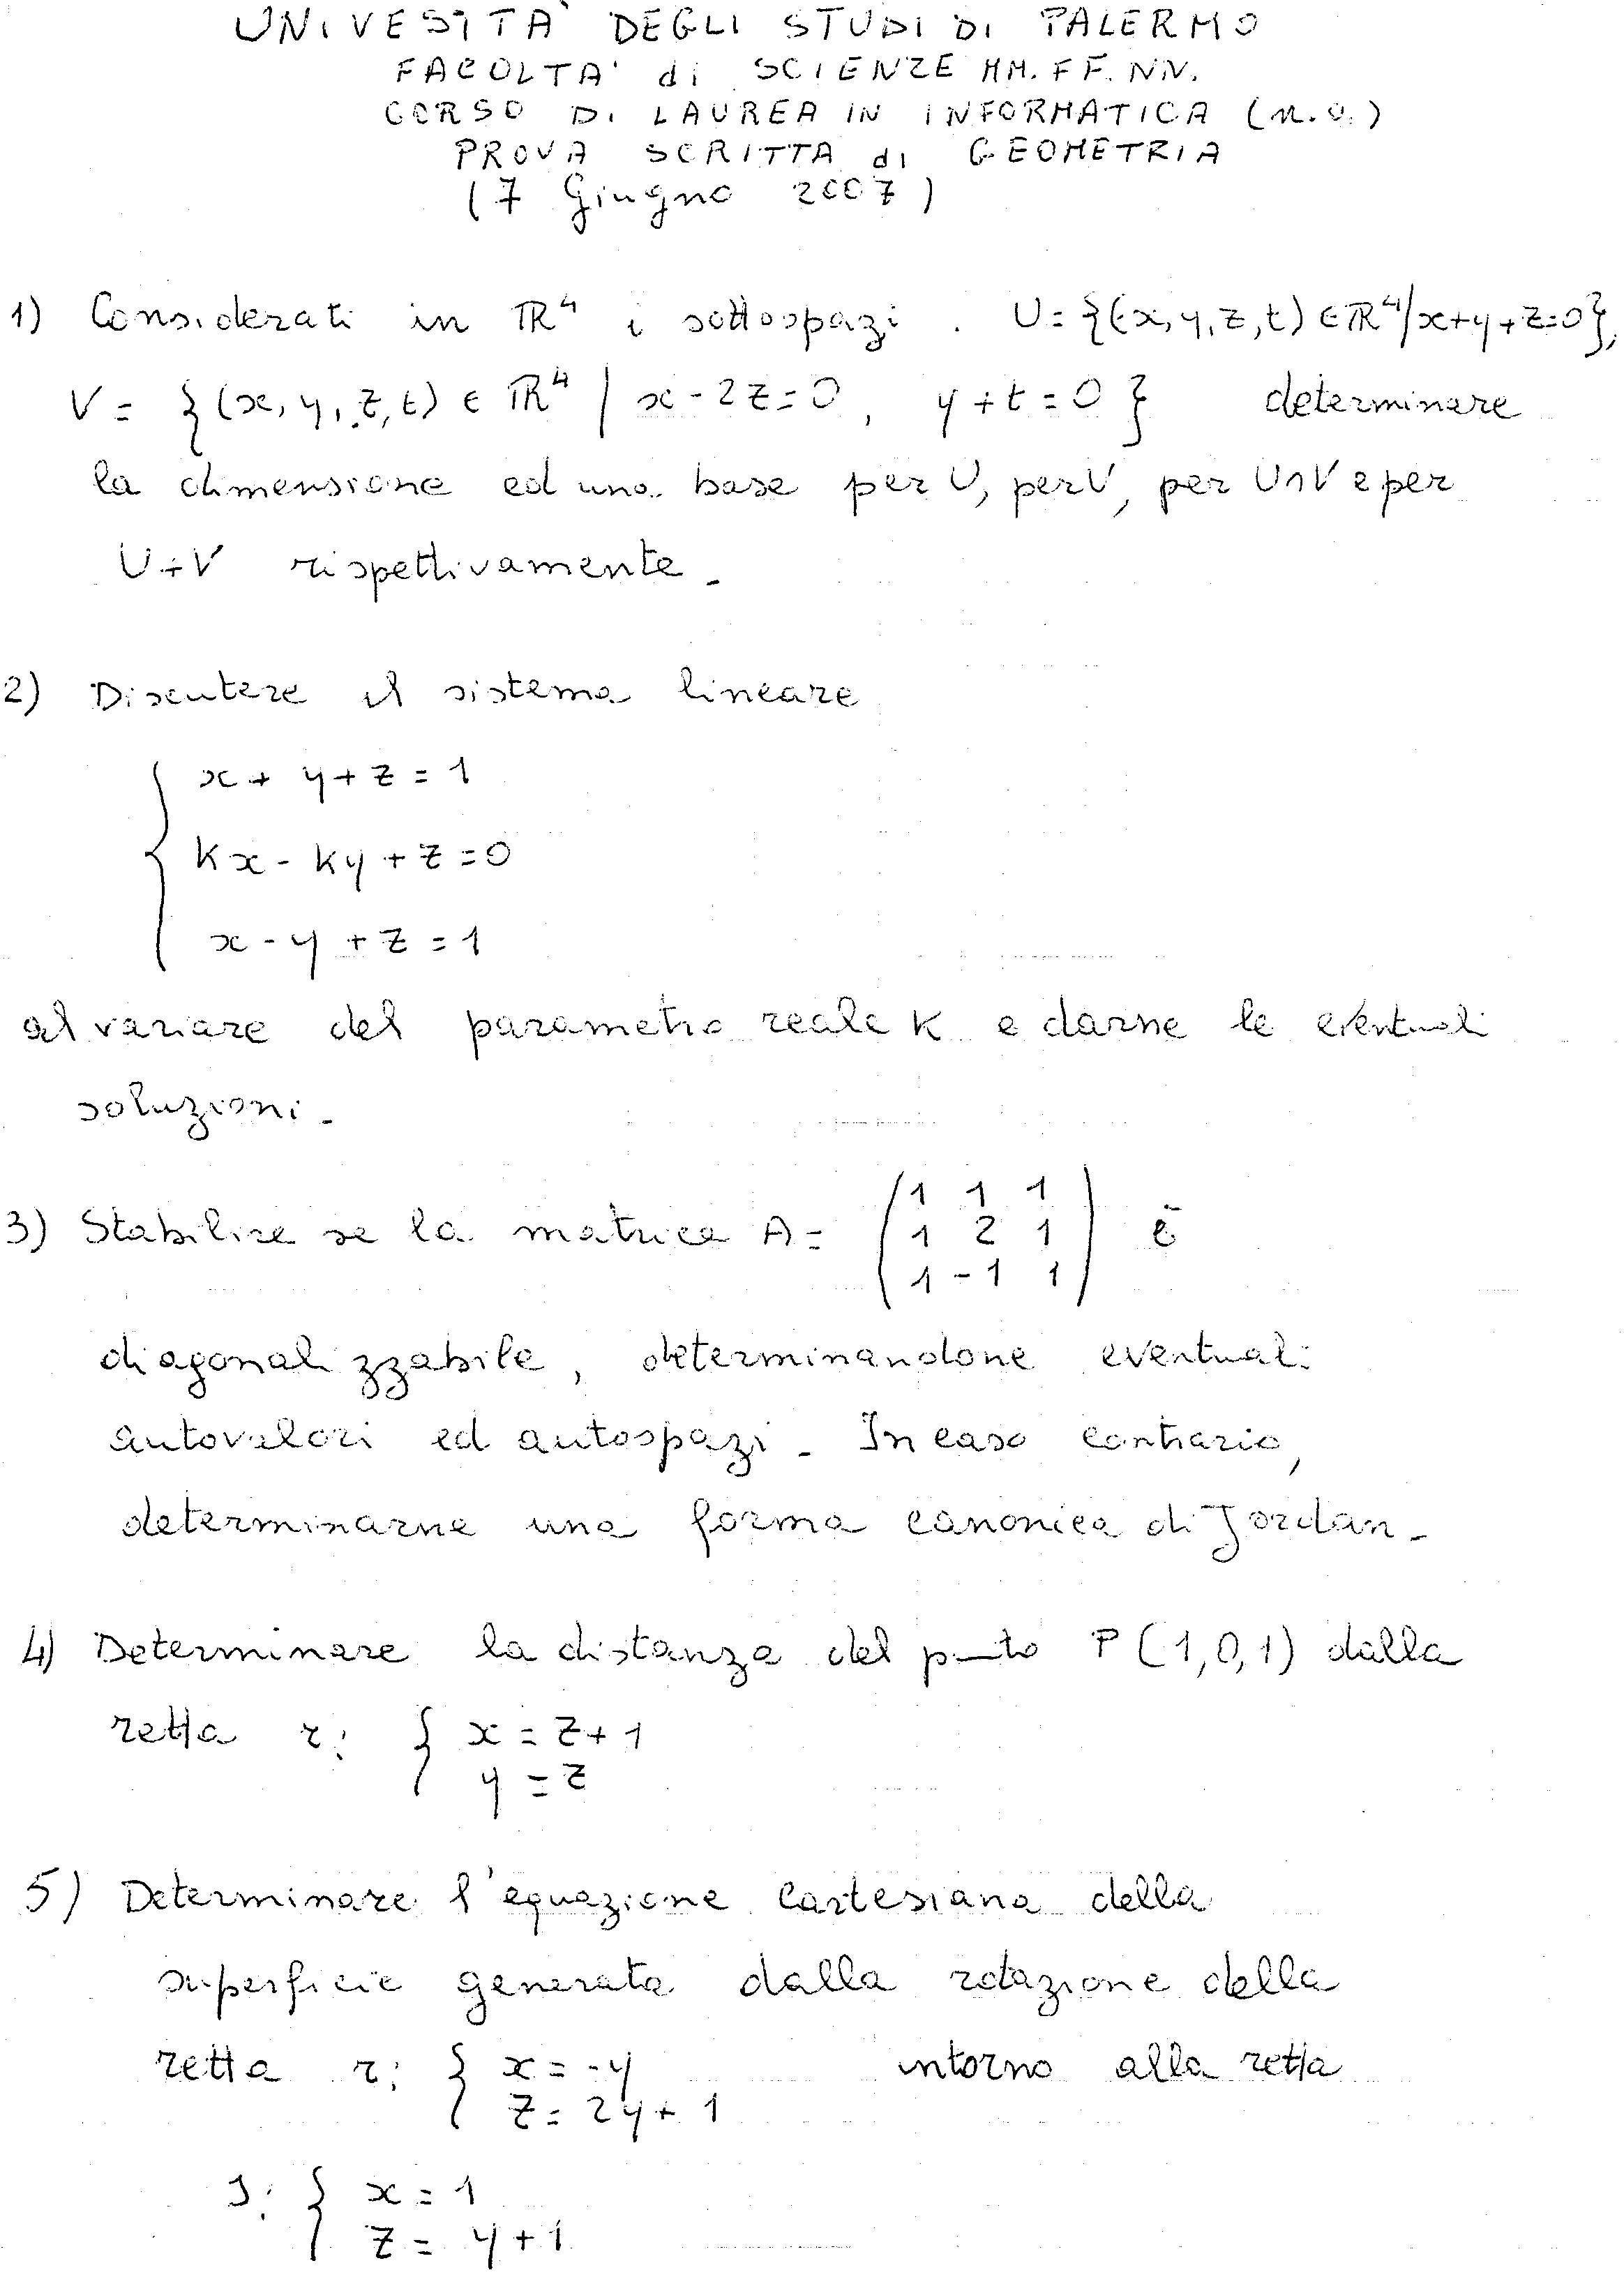 UNIVESITA' DEGLI STUDI DI PALERMO
FACOLTA' di SCIENZE MM. FF. NN.
CORSO DI LAUREA IN INFORMATICA (n.o.)
PROVA SCRITTA di GEOMETRIA
(7 Giugno 2007)
1) Considerati in ℝ⁴ i sottospazi . U = {(x, y, z, t) ∈ ℝ⁴ / x+y+z=0},
V = {(x, y, z, t) ∈ ℝ⁴ | x - 2z = 0, y + t = 0 } determinare
la dimensione ed una base per U, per V, per U∩V e per
U+V rispettivamente -
2) Discutere il sistema lineare
{ x + y + z = 1
kx - ky + z = 0
x - y + z = 1
al variare del parametro reale k e darne le eventuali
soluzioni -
3) Stabilire se la matrice A = ( 1 1 1 è
1 2 1
1 -1 1 )
diagonalizzabile, determinandone eventuali
autovalori ed autospazi - In caso contrario,
determinarne una forma canonica di Jordan -
4) Determinare la distanza del punto P (1,0,1) dalla
retta r: { x = z + 1
y = z
5) Determinare l'equazione cartesiana della
superficie generata dalla rotazione della
retta r: { x = -y intorno alla retta
z = 2y + 1
s: { x = 1
z = y + 1